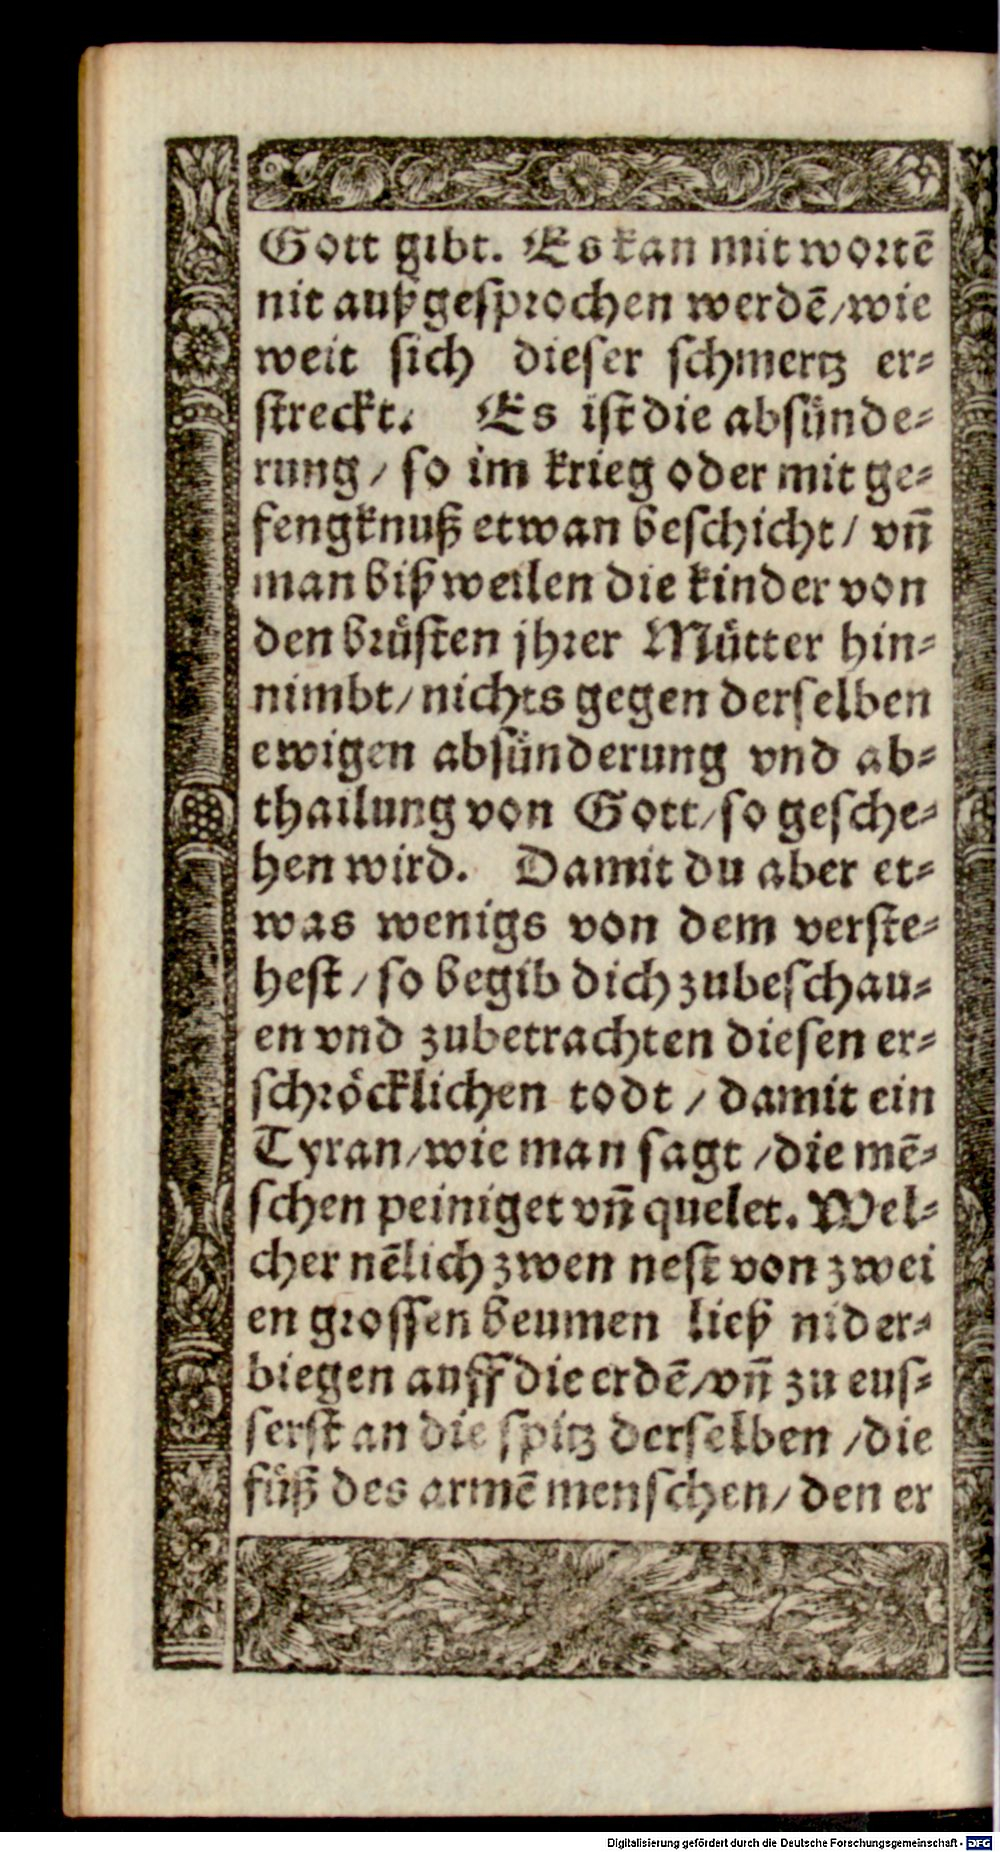 Gott gibt. Es kan mit wortē
nit außgesprochen werdē/wie
weit sich dieser schmertz er⸗
streckt. Es ist die absünde⸗
rung/ so im krieg oder mit ge⸗
fengknuß etwan beschicht/ vñ
man bißweilen die kinder von
den brüsten jhrer Mütter hin⸗
nimbt/ nichts gegen derselben
ewigen absünderung vnd ab⸗
thailung von Gott/so gesche⸗
hen wird. Damit du aber et⸗
was wenigs von dem verste⸗
hest/so begib dich zubeschau⸗
en vnd zubetrachten diesen er⸗
schröcklichen todt/ damit ein
Tyran/wie man sagt/die mē⸗
schen peiniget vñ quelet. Wel⸗
cher nēlich zwen nest von zwei
en grossen beumen ließ nider⸗
biegen auff die erdē/vñ zu eus⸗
serst an die spitz derselben/die
füß des armē menschen/ den er
Digitalisierung gefördert durch die Deutsche Forschungsgemeinschaft - DFG